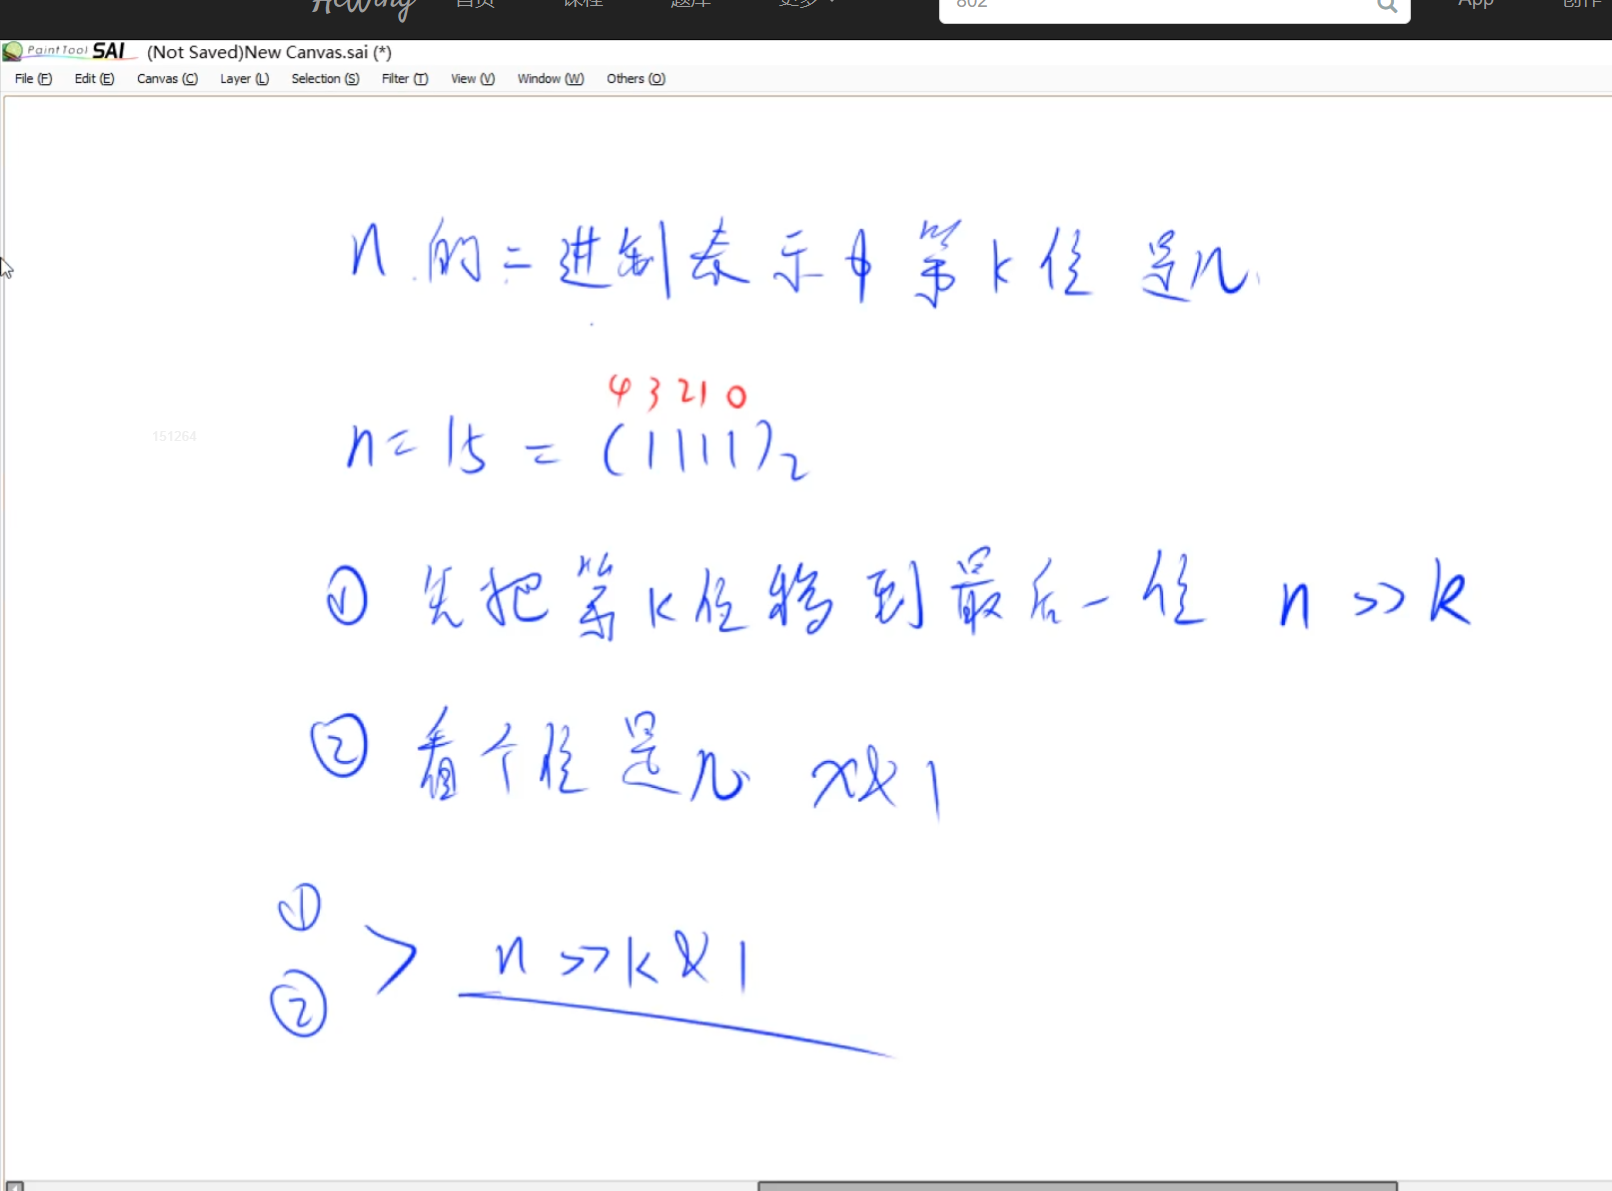 AcWing 首页 课程 题库 更多 802 App 创作
PaintTool SAI (Not Saved)New Canvas.sai (*)
File (F) Edit (E) Canvas (C) Layer (L) Selection (S) Filter (T) View (V) Window (W) Others (O)
n的二进制表示中第k位是几
4 3 2 1 0
n = 15 = (1111)2
151264
① 先把第k位移到最后一位 n >> k
② 看个位是几 x & 1
①
② > n >> k & 1